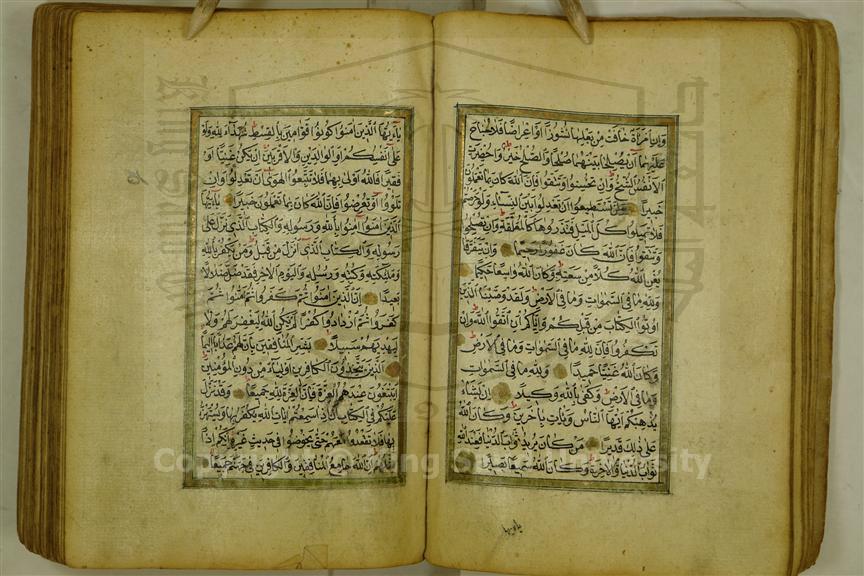 وان امرأة خافت من بعلها نشوزا او اعراضا فلا جناح
عليهما ان يصلحا بينهما صلحا والصلح خير واحضرت
الانفس الشح وان تحسنوا وتتقوا فان الله كان بما تعملون
خبيرا ولن تستطيعوا ان تعدلوا بين النساء ولو حرصتم
فلا تميلوا كل الميل فتذروها كالمعلقة وان تصلحوا
وتتقوا فان الله كان غفورا رحيما وان يتفرقا
يغن الله كلا من سعته وكان الله واسعا حكيما
ولله ما في السموات وما في الارض ولقد وصينا الذين
اوتوا الكتاب من قبلكم واياكم ان اتقوا الله وان
تكفروا فان لله ما في السموات وما في الارض
وكان الله غنيا حميدا ولله ما في السموات
وما في الارض وكفى بالله وكيلا ان يشاء
يذهبكم ايها الناس ويات باخرين وكان الله
على ذلك قديرا من كان يريد ثواب الدنيا فعند الله
ثواب الدنيا والاخرة وكان الله سميعا بصيرا
يا ايها
يا ايها الذين امنوا كونوا قوامين بالقسط شهداء لله ولو
على انفسكم او الوالدين والاقربين ان يكن غنيا او
فقيرا فالله اولى بهما فلا تتبعوا الهوى ان تعدلوا وان
تلووا او تعرضوا فان الله كان بما تعملون خبيرا يا ايها
الذين امنوا امنوا بالله ورسوله والكتاب الذي نزل على
رسوله والكتاب الذي انزل من قبل ومن يكفر بالله
وملئكته وكتبه ورسله واليوم الاخر فقد ضل ضلالا
بعيدا ان الذين امنوا ثم كفروا ثم امنوا ثم
كفروا ثم ازدادوا كفرا لم يكن الله ليغفر لهم ولا
ليهديهم سبيلا بشر المنافقين بان لهم عذابا اليما
الذين يتخذون الكافرين اولياء من دون المؤمنين
ايبتغون عندهم العزة فان العزة لله جميعا وقد نزل
عليكم في الكتاب ان اذا سمعتم ايات الله يكفر بها ويستهزا
بها فلا تقعدوا معهم حتى يخوضوا في حديث غيره انكم اذا
مثلهم ان الله جامع المنافقين والكافرين في جهنم جميعا
Copyright © King Saud University